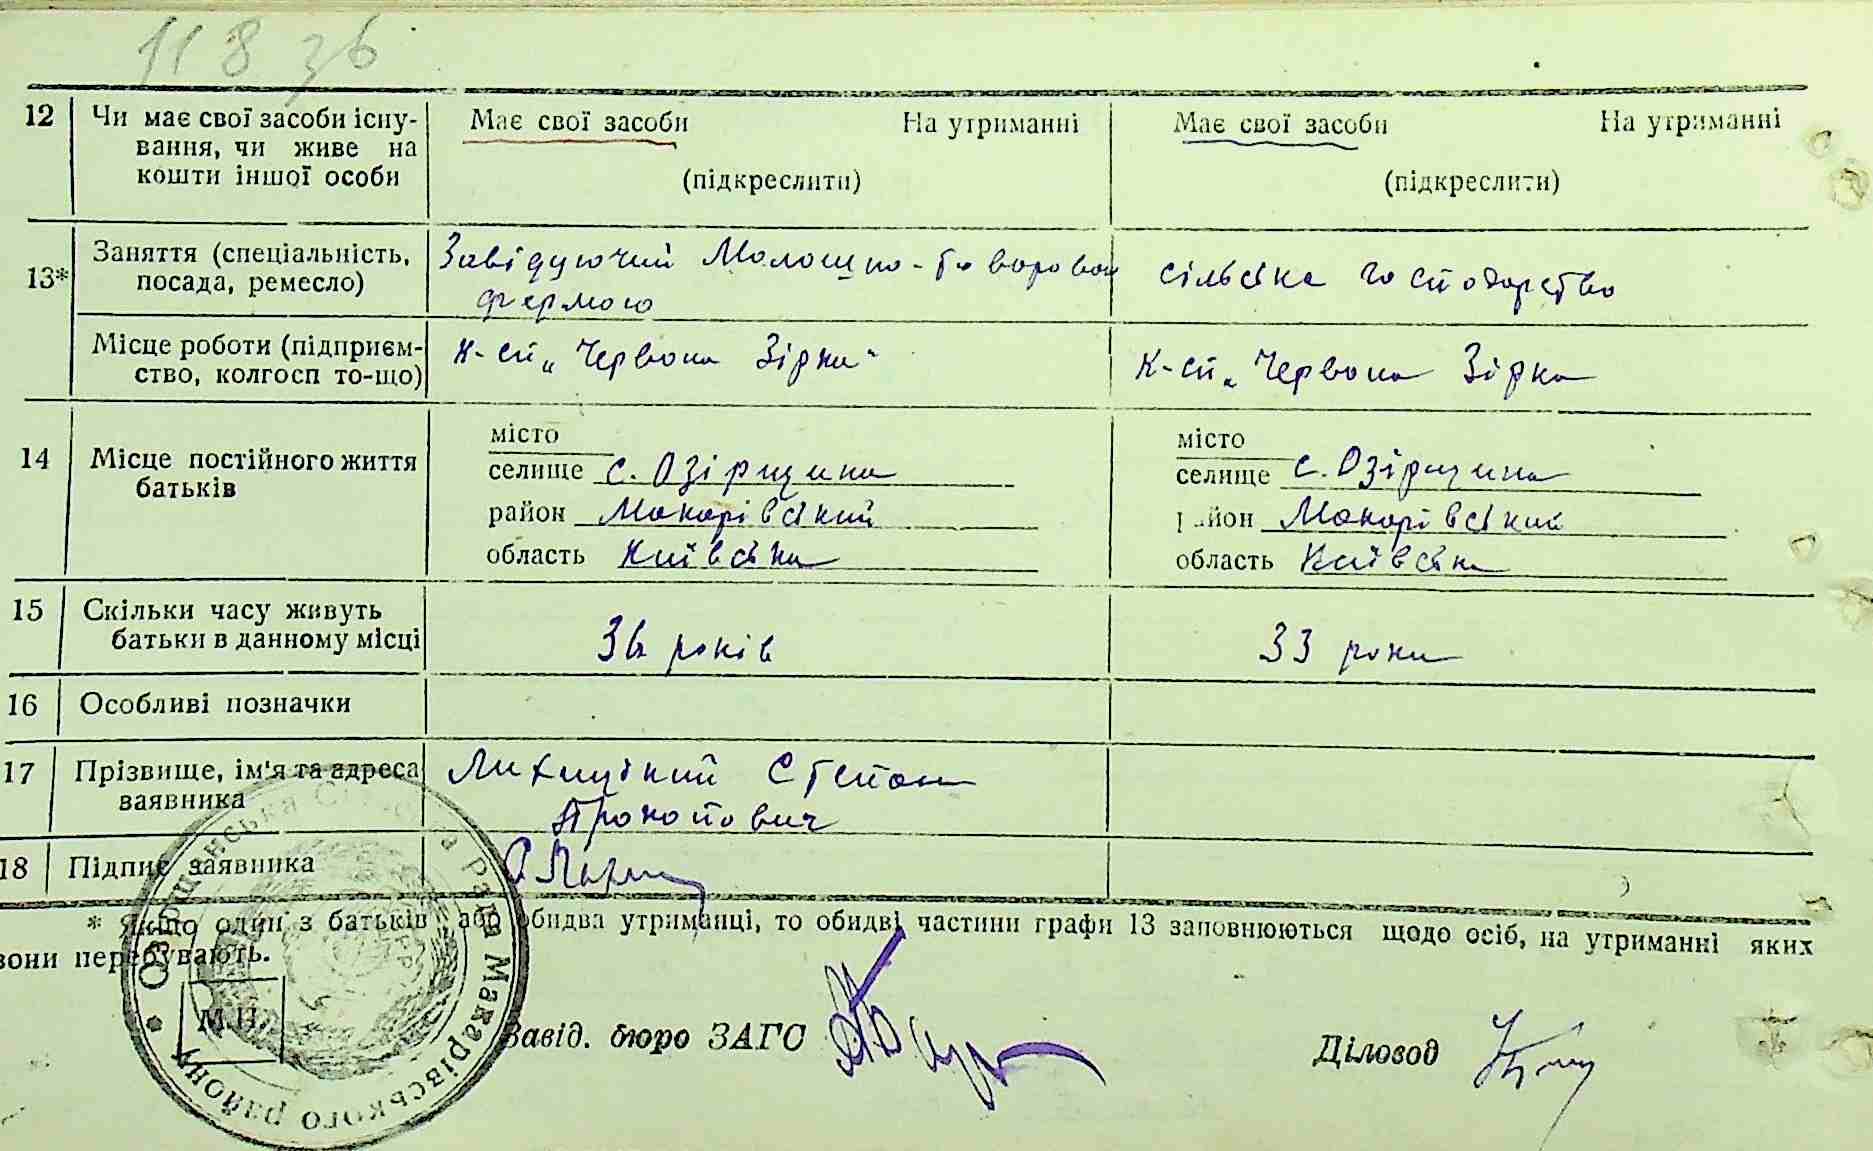 118 зв
12 Чи має свої засоби існу- Має свої засоби На утриманні Має свої засоби На утриманні
вання, чи живе на
кошти іншої особи (підкреслити) (підкреслити)
13* Заняття (спеціальність, Завідуючий Молошно-товаровою сільське господарство
посада, ремесло) фермою
Місце роботи (підприєм- К-сп „Червона Зірка" К-сп „Червона Зірка
ство, колгосп то-що)
14 Місце постійного життя батьків
місто місто
селище с. Озірщина селище с. Озірщина
район Макарівський район Макарівський
область Київська область Київська
15 Скільки часу живуть
батьки в данному місці 36 років 33 роки
16 Особливі позначки
17 Прізвище, ім'я та адреса Лихицький Степан
заявника Прокопович
18 Підпис заявника
* Якщо один з батьків або обидва утриманці, то обидві частини графи 13 заповнюються щодо осіб, на утриманні яких
вони перебувають.
Озірщанська Сільська Рада Макарівського району
М.П.
Завід. бюро ЗАГС Діловод